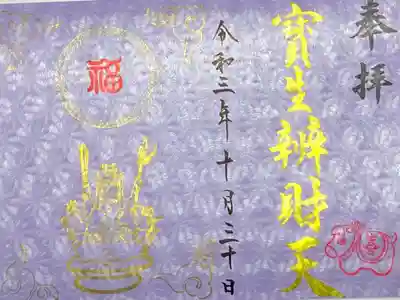 奉拝
寳生辨財天
令和三年十月三十日
福